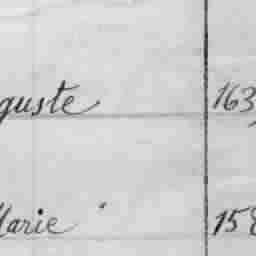 guste 163
Marie " 158